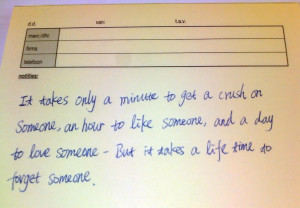 d.d. van: t.a.v.
firma:
telefoon:
notities:
It takes only a minute to get a crush on
someone, an hour to like someone, and a day
to love someone - But it takes a life time to
forget someone.